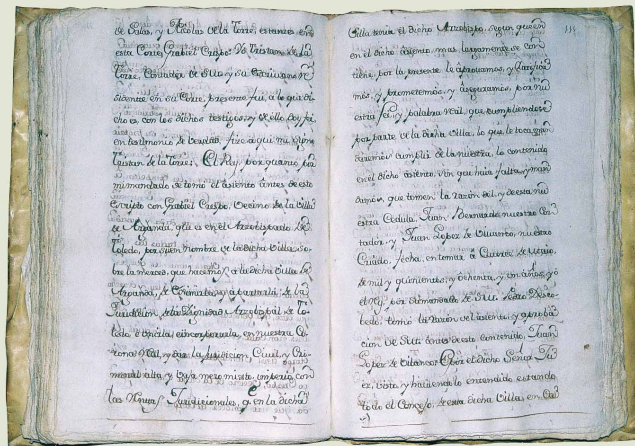 de Salas, y Nicolas de la Torre, estantes en
esta Corte, Grabiel Crespo. Yo Tristan de la
Torre, Escribano de Su y su Escrivano
en su Corte, presente fui, a lo que di-
cho es con los dichos testigos, y de ello doy fee,
en testimonio de Verdad, fize aqui mi signo
Tristan de la Torre. El Rey, por quanto por
mi mandado se tomó el asiento antes de esto
escripto con Grabiel Crespo, Vecino de la Villa
de Arganda, que es en el Arzobispado de
Toledo, por si, y en nombre de la dicha Villa, so-
bre la merced, que hacemos a la dicha Villa de
Arganda, de y apartarla de la
Jurisdicion, de la Dignidad Arzobispal de To-
ledo, e incorporarla, en nuestra Co-
rona Real, y dar la Jurisdicion, Civil, y Cri-
minal alta, y baja mero mixto imperio, con
las Jurisdicionales, q. en la dicha
Villa tenia el dicho Arzobispo, segun que en
en el dicho asiento, mas largamente se con-
tiene, por la presente le aprovamos, y ratifica-
mos, y prometemos, y aseguramos, por nu-
estra fee, y palabra Real, que cumpliendose
por parte de la dicha Villa, lo que le toca, man-
daremos cumplir de la nuestra, lo contenido
en el dicho asiento, sin que haia falta, y man-
damos, que tomen la razón del, y de esta nu-
estra Cedula, Juan Bernardo nuestro Con-
tador, y Juan Lopez de Vivanco, nuestro
Criado, fecha, en tomar a Quince de Junio
de mil y quinientos, y ochenta, y un años, yo
el Rey, por mandado de Su Pedro Desco-
bedo, tomó la Razón del asiento, y aproba-
cion de Su antes de esto contenido, Juan
Lopez de Vibanco. Por el dicho Señor
ez, Vista, y haviendo lo entendido estando
todo el Concejo, de esta dicha Villa, en Cav